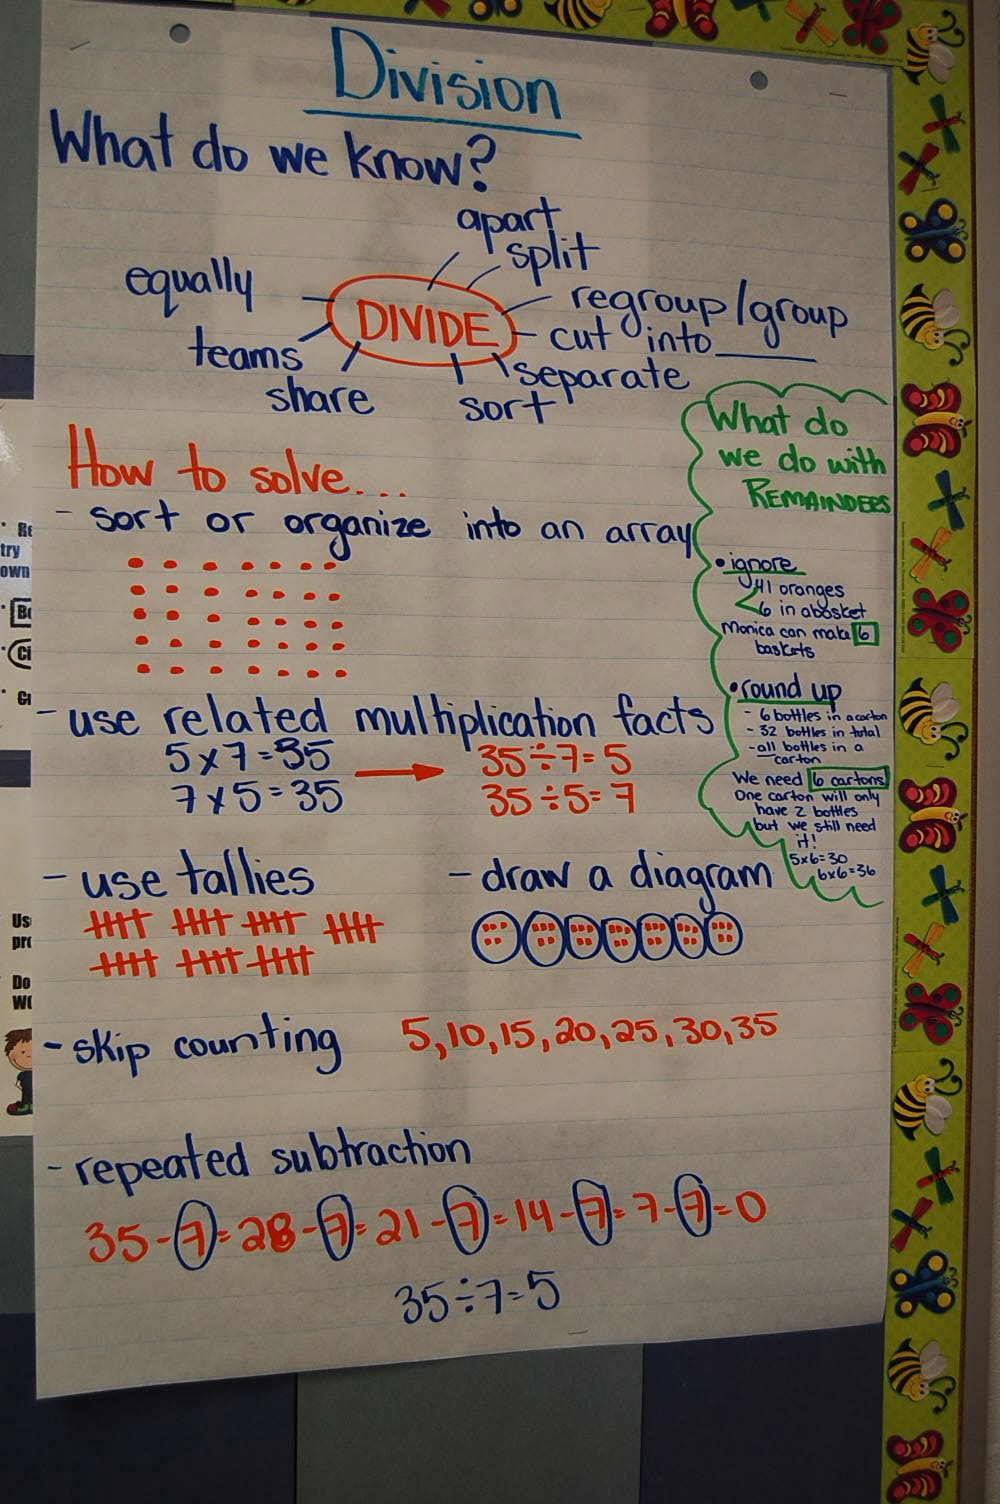 Division
What do we know?
apart
split
equally
DIVIDE
regroup/group
cut into_____
teams
separate
share
sort
How to solve...
- sort or organize into an array
- use related multiplication facts
5 x 7 = 35
7 x 5 = 35
35 ÷ 7 = 5
35 ÷ 5 = 7
- use tallies
- draw a diagram
- skip counting 5, 10, 15, 20, 25, 30, 35
- repeated subtraction
35 - 7 = 28 - 7 = 21 - 7 = 14 - 7 = 7 - 7 = 0
35 ÷ 7 = 5
What do
we do with
REMAINDERS
• ignore
41 oranges
6 in a basket
Monica can make 6
baskets
• round up
- 6 bottles in a carton
- 32 bottles in total
- all bottles in a
carton
We need 6 cartons
One carton will only
have 2 bottles
but we still need
it!
5x6=30
6x6=36
try
own
Do